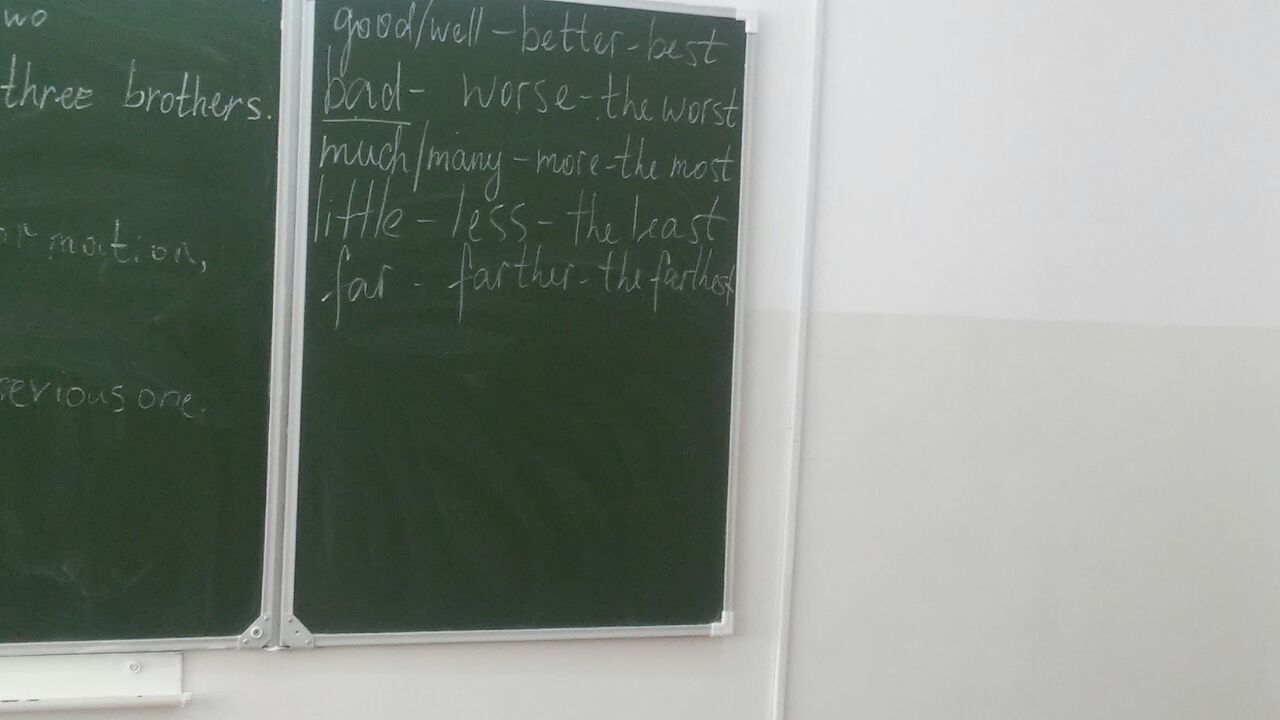 wo
three brothers.
ormation,
revious one.
good/well - better - best
bad - worse - the worst
much/many - more - the most
little - less - the least
far - farther - the farthest